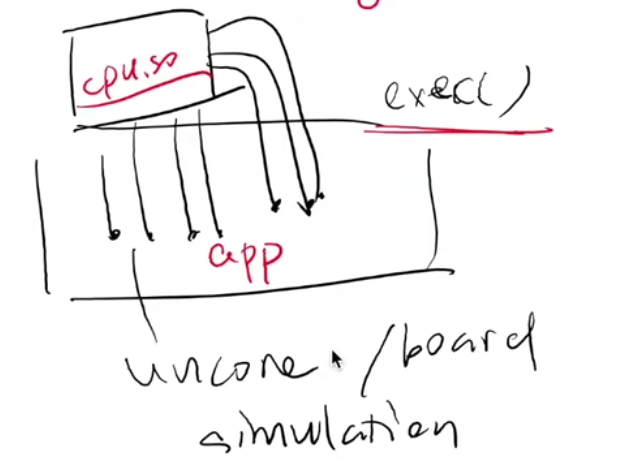 cpu.so
exec()
app
uncore /board
simulation